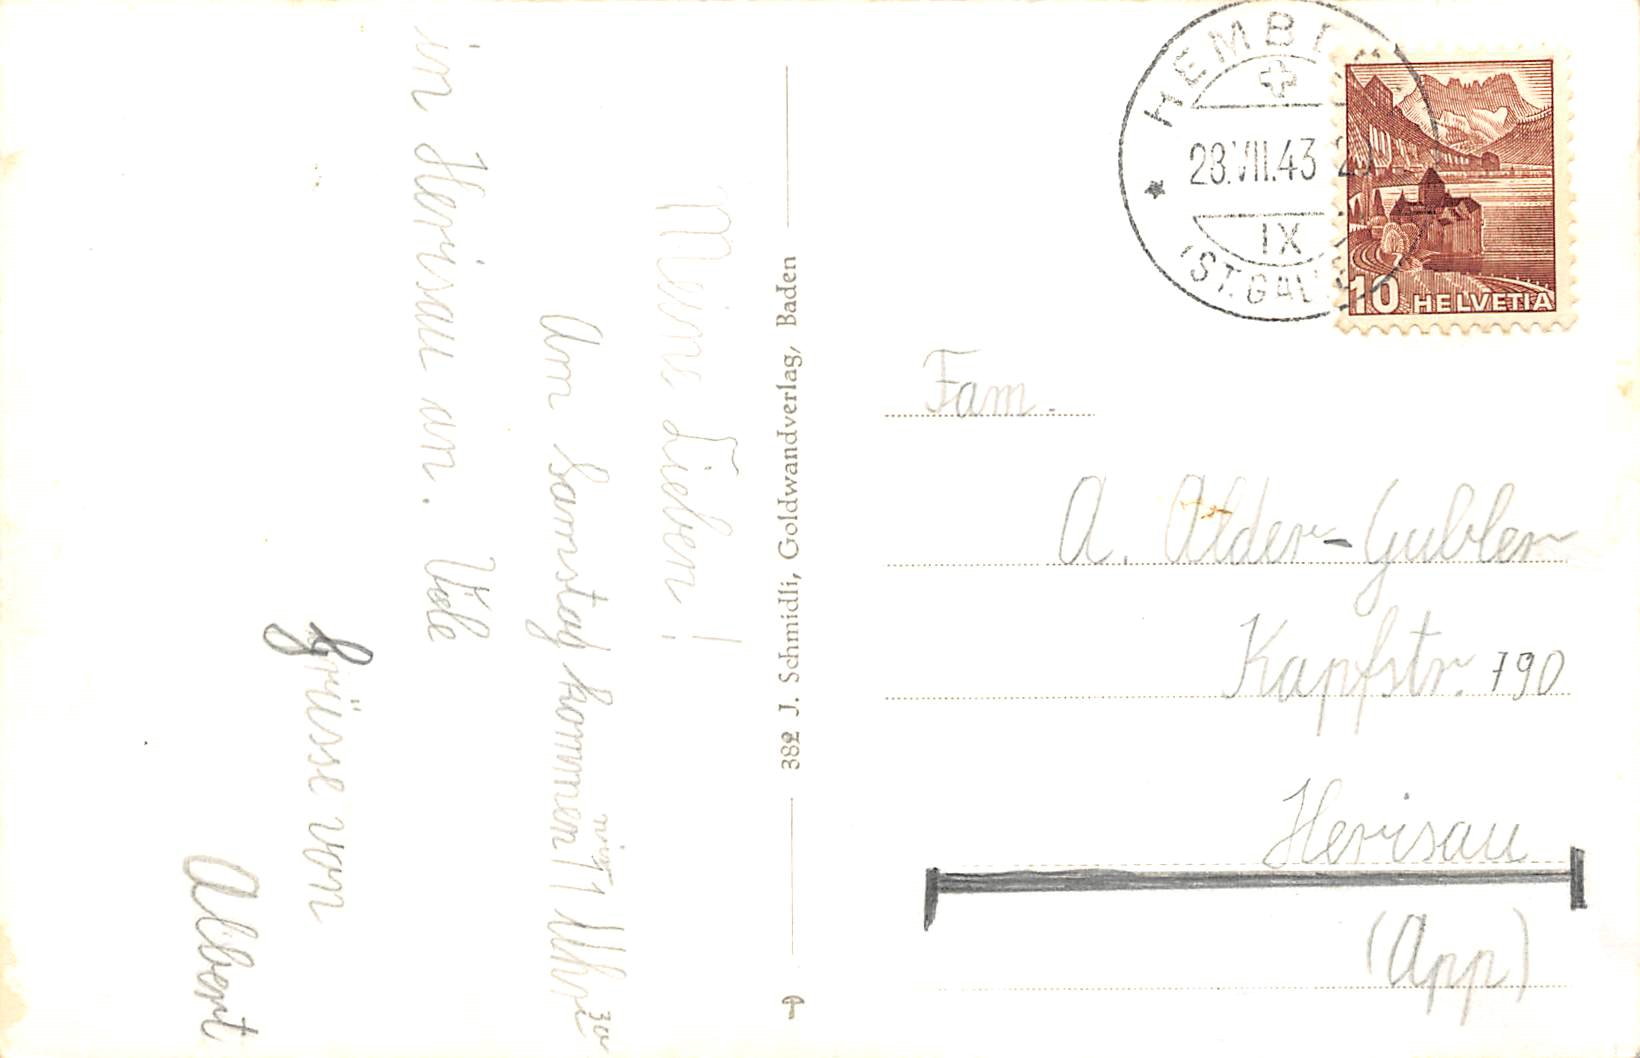 Meine Lieben!
Am Samstag kommen wir 11 Uhr 30
in Herisau an. Viele
Grüsse von
Albert
382 J. Schmidli, Goldwandverlag, Baden
28.VII.43
IX
(ST. GALL
10 HELVETIA
Fam.
A. Alder-Gubler
Kapfstr. 790
Herisau
(App)